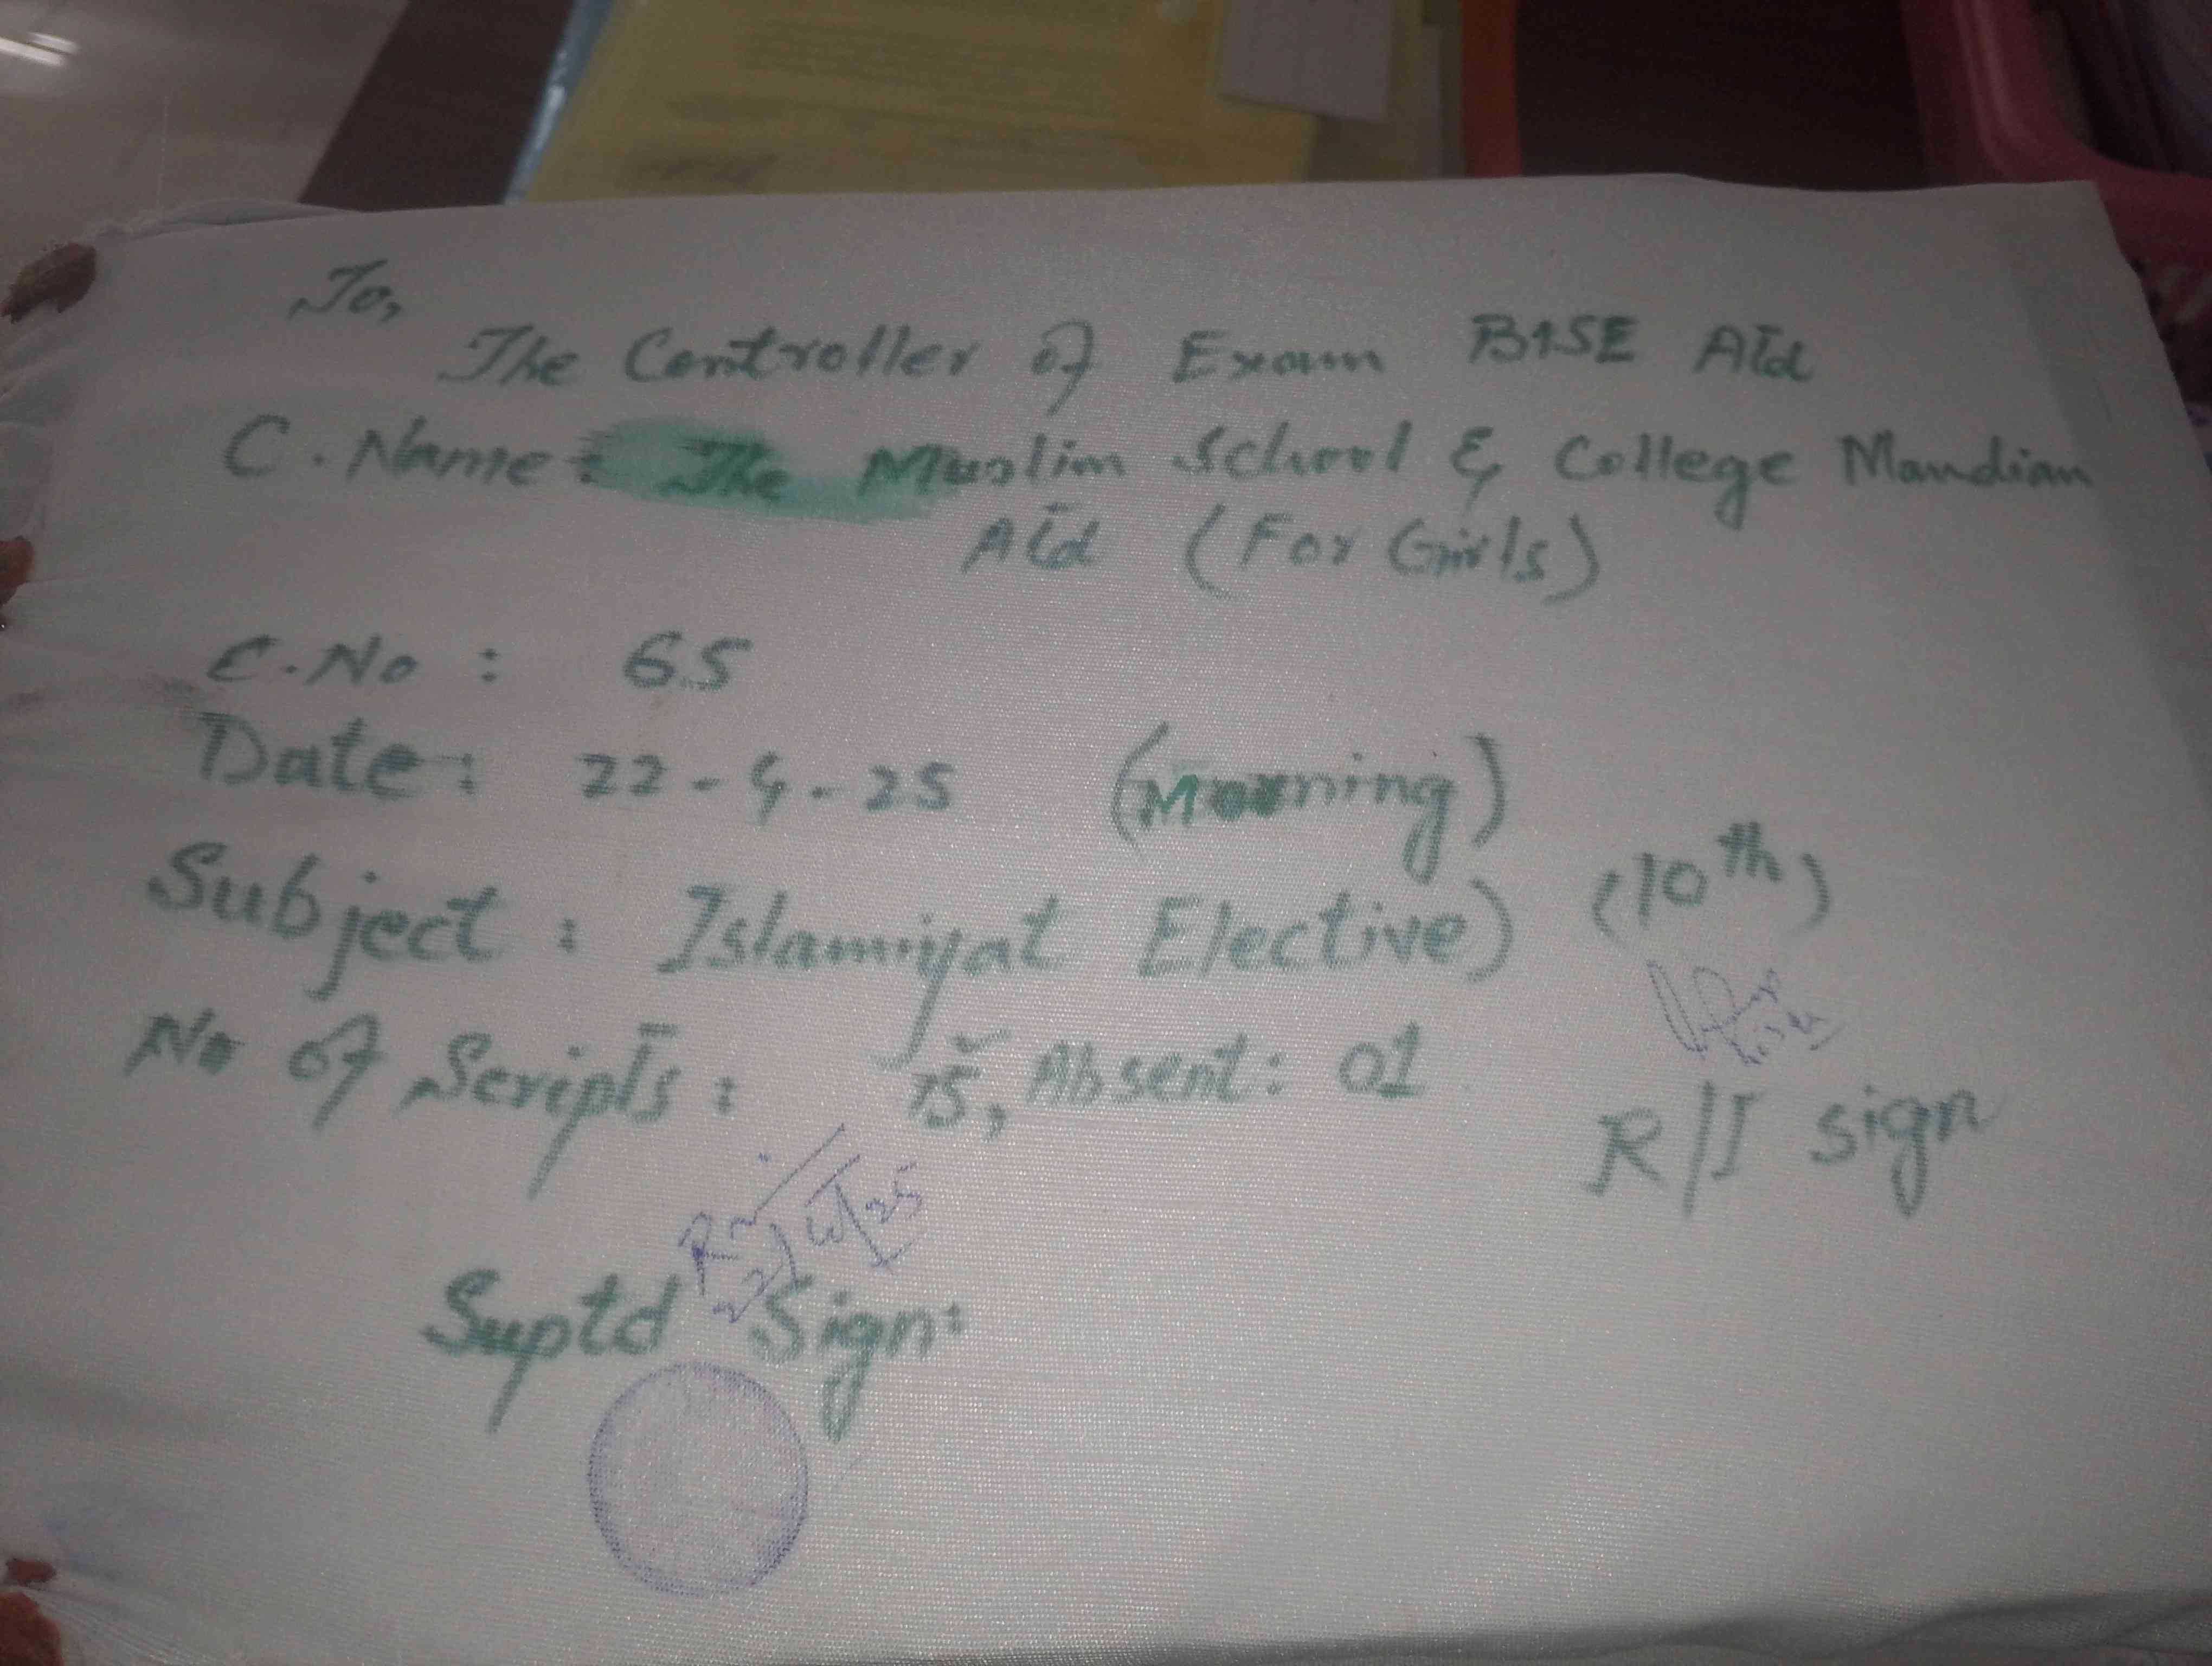 To,
The Controller of Exam BISE ATd
C. Name: The Muslim School & College Mandian
ATd (For Girls)
C.No : 65
Date: 22-4-25 (Morning)
Subject : Islamiyat Elective) (10th)
No of Scripts: 15, Absent: 01
R/I sign
22/4/25
Suptd Sign: